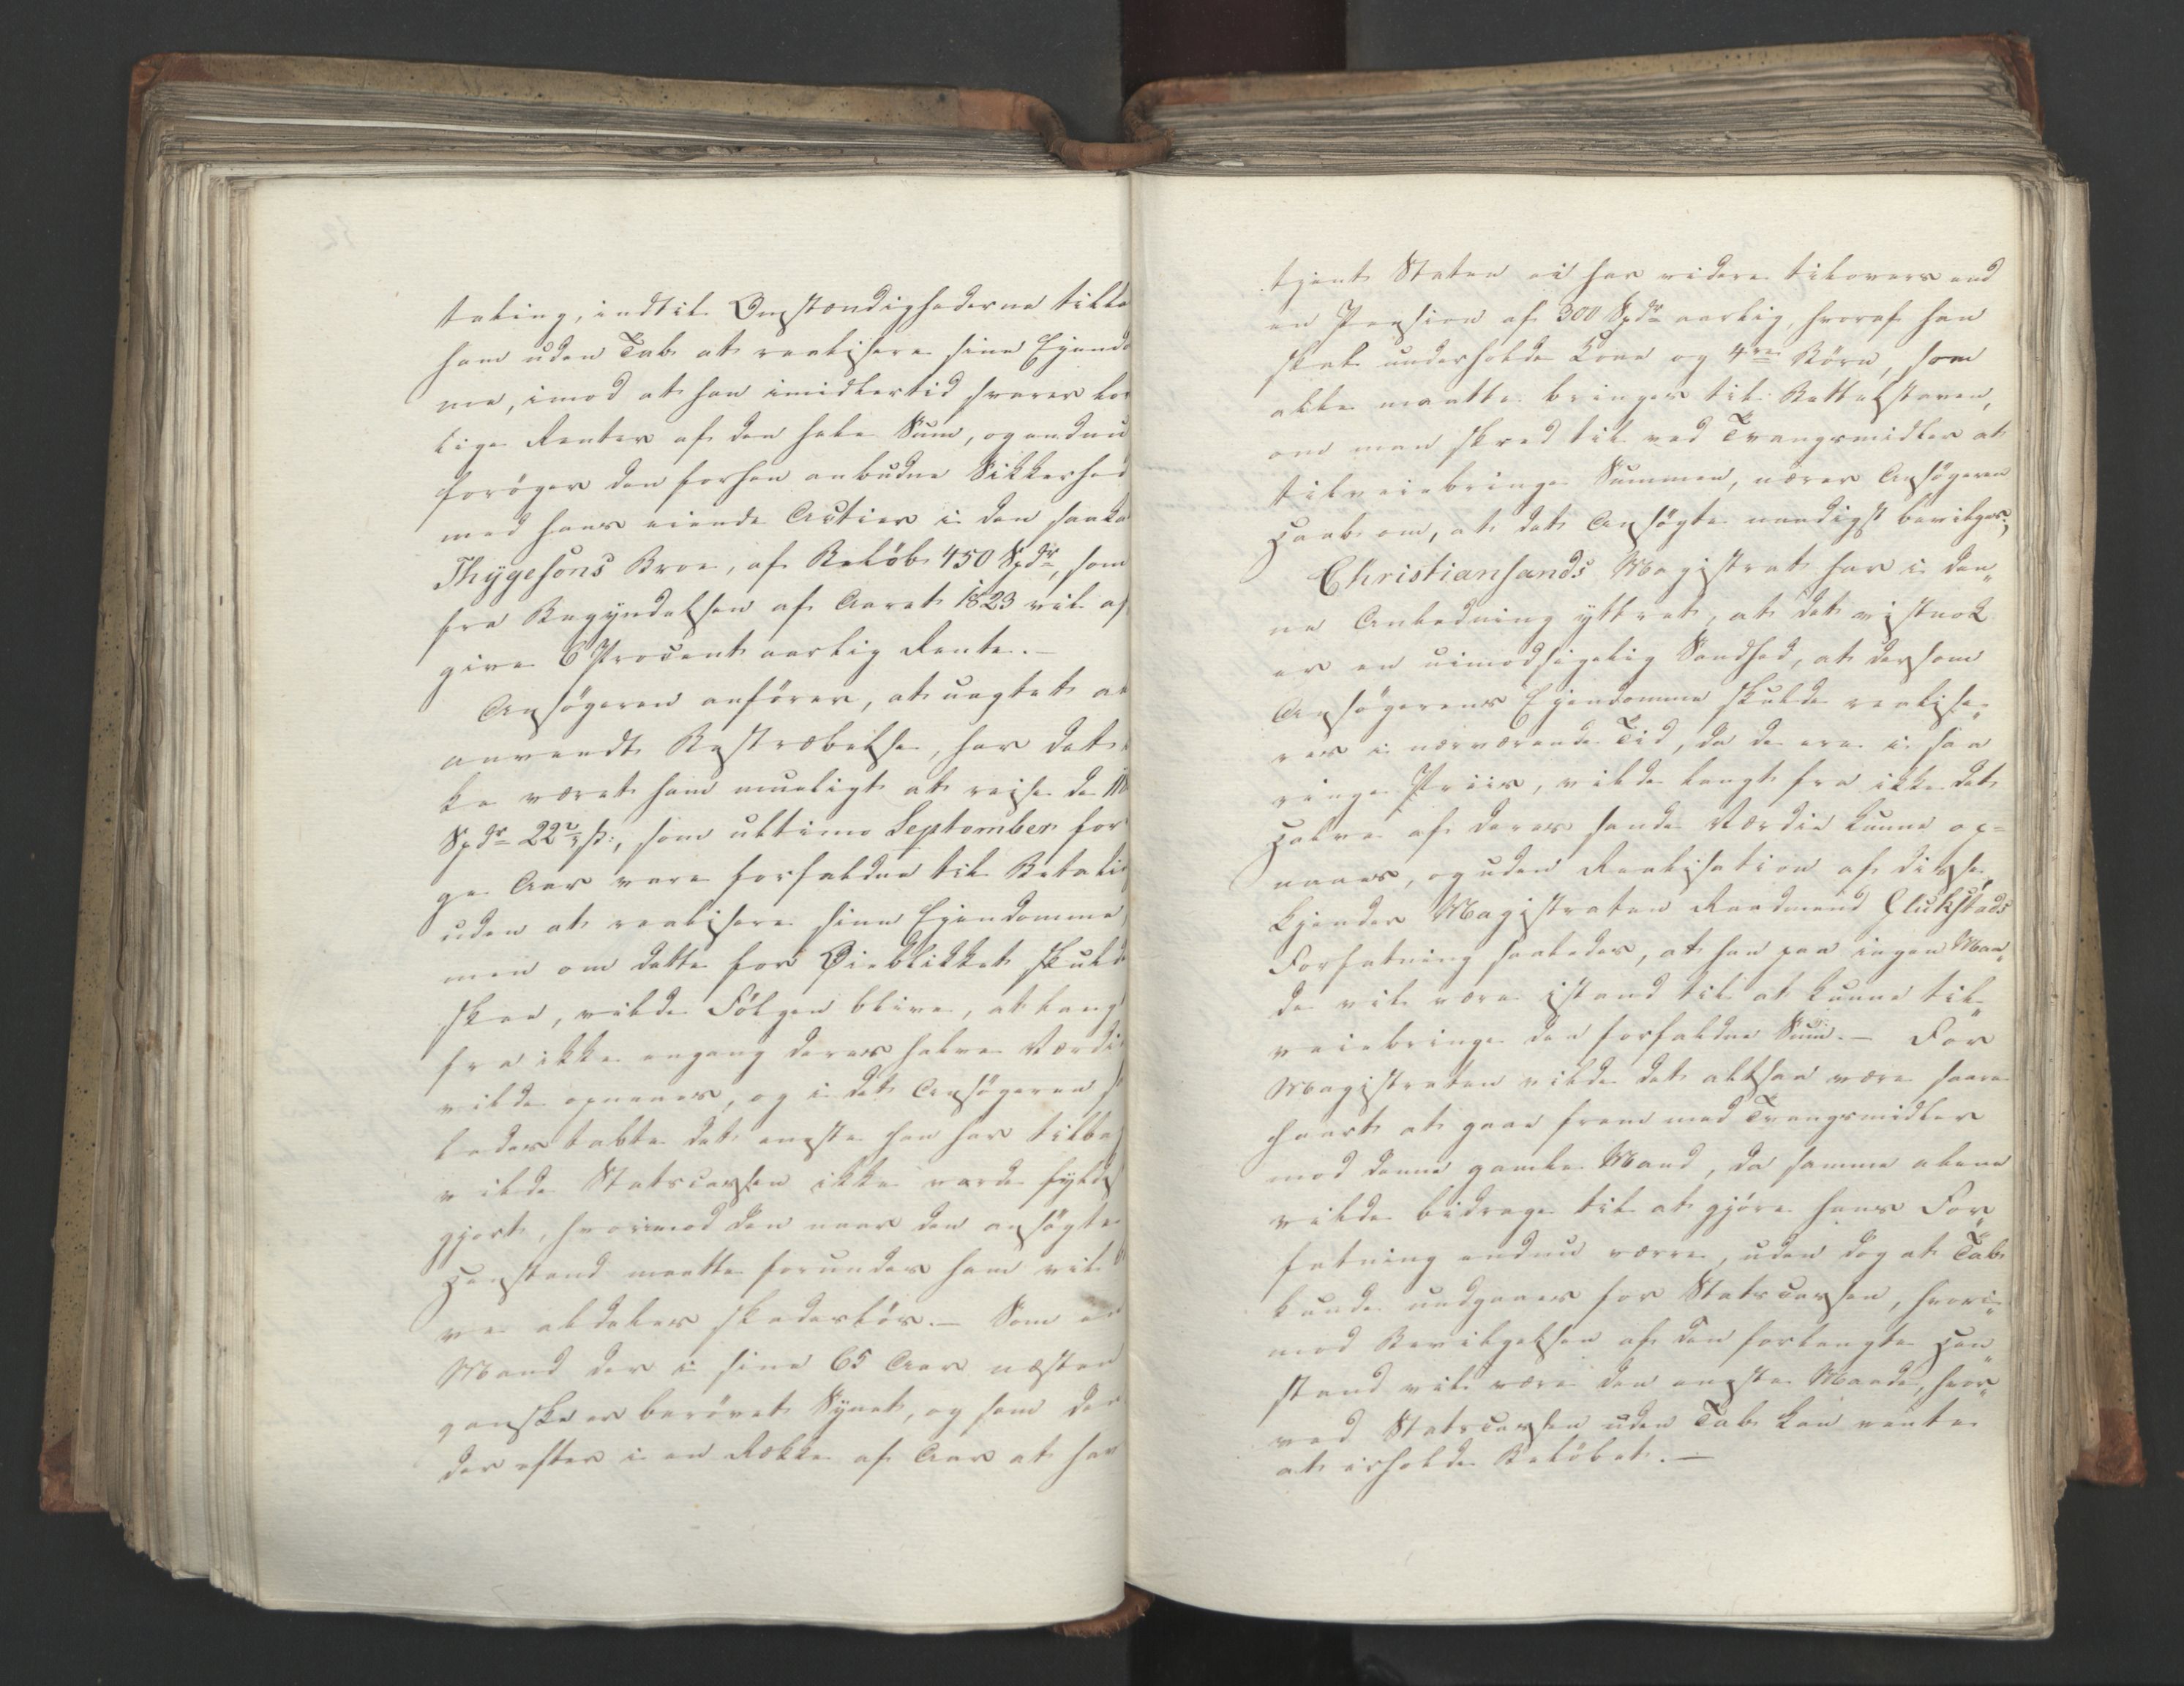 taling, indtil Omstændighederne tilla
ham uden Tab at realisere sine Eiendo
me, imod at han imidlertid svarer lov
lige Renter af den hele Sum, og endnu
forøger den forhen anbudne Sikkerhed
med hans eiende Actier i den saaka
Thygesons Broe, af Beløb 450 Spdr, som
fra Begyndelsen af Aaret 1823 vil af
give 6 Procent aarlig Rente.-
Ansøgeren anfører, at uagtet al
anvendt Bestræbelse, har det
ke været ham mueligt at reise de
Spdr 22 2/5 ß:, som ultimo September for
ge Aar vare forfaldne til Betalin
uden at realisere sine Eiendomme,
men om dette for Øieblikket skulde
skee, vilde Følgen blive, at lang
fra ikke engang deres halve Værdi
vilde opnaaes, og i det Ansøgeren s
ledes tabte det eneste han har tilba
vilde Statscassen ikke vorde fyldest
gjort, hvorimod den naar den ansøgte
Henstand maatte forundes ham vil b
ve aldeles skadesløs.- Som en
Mand der i sine 65 Aar næsten
ganske er berøvet Synet, og som der
der efter i en Række af Aar at hav
tjent Staten ei har videre tilovers end
en Pension af 300 Spdr aarlig, hvoraf han
skal underholde Kone og 4re Børn, som
alle maatte bringes til Bettelstaven,
om man skred til ved Tvangsmidler at
tilveiebringe Summen, nærer Ansøgeren
Haab om, at det Ansøgte naadigst bevilges;
Christiansands Magistrat har i den„
ne Anledning yttret, at det vistnok
er en uimodsigelig Sandhed, at dersom
Ansøgerens Eiendomme skulde realise„
res i nærværende Tid, da de ere i saa
ringe Priis, vilde langt fra ikke det
Halve af deres sande Værdie kunne op=
naaes, og uden Realisation af disse,
kjender Magistraten Raadmand Glukstads
Forfatning saaledes, at han paa ingen Maa„
de vil være istand til at kunne til„
veiebringe den forfaldne Sum.- For
Magistraten vilde det altsaa være saare
haart at gaae frem med Tvangsmidler
mod denne gamle Mand, da samme alene
vilde bidrage til at gjøre hans For„
fatning endnu værre, uden dog at Tab
kunde undgaaes for Statscassen, hvori„
mod Bevilgelsen af den forlangte Hen„
stand vil være den eneste Maade, hvor„
ved Statscassen uden Tab kan vente
at erholde Beløbet.-